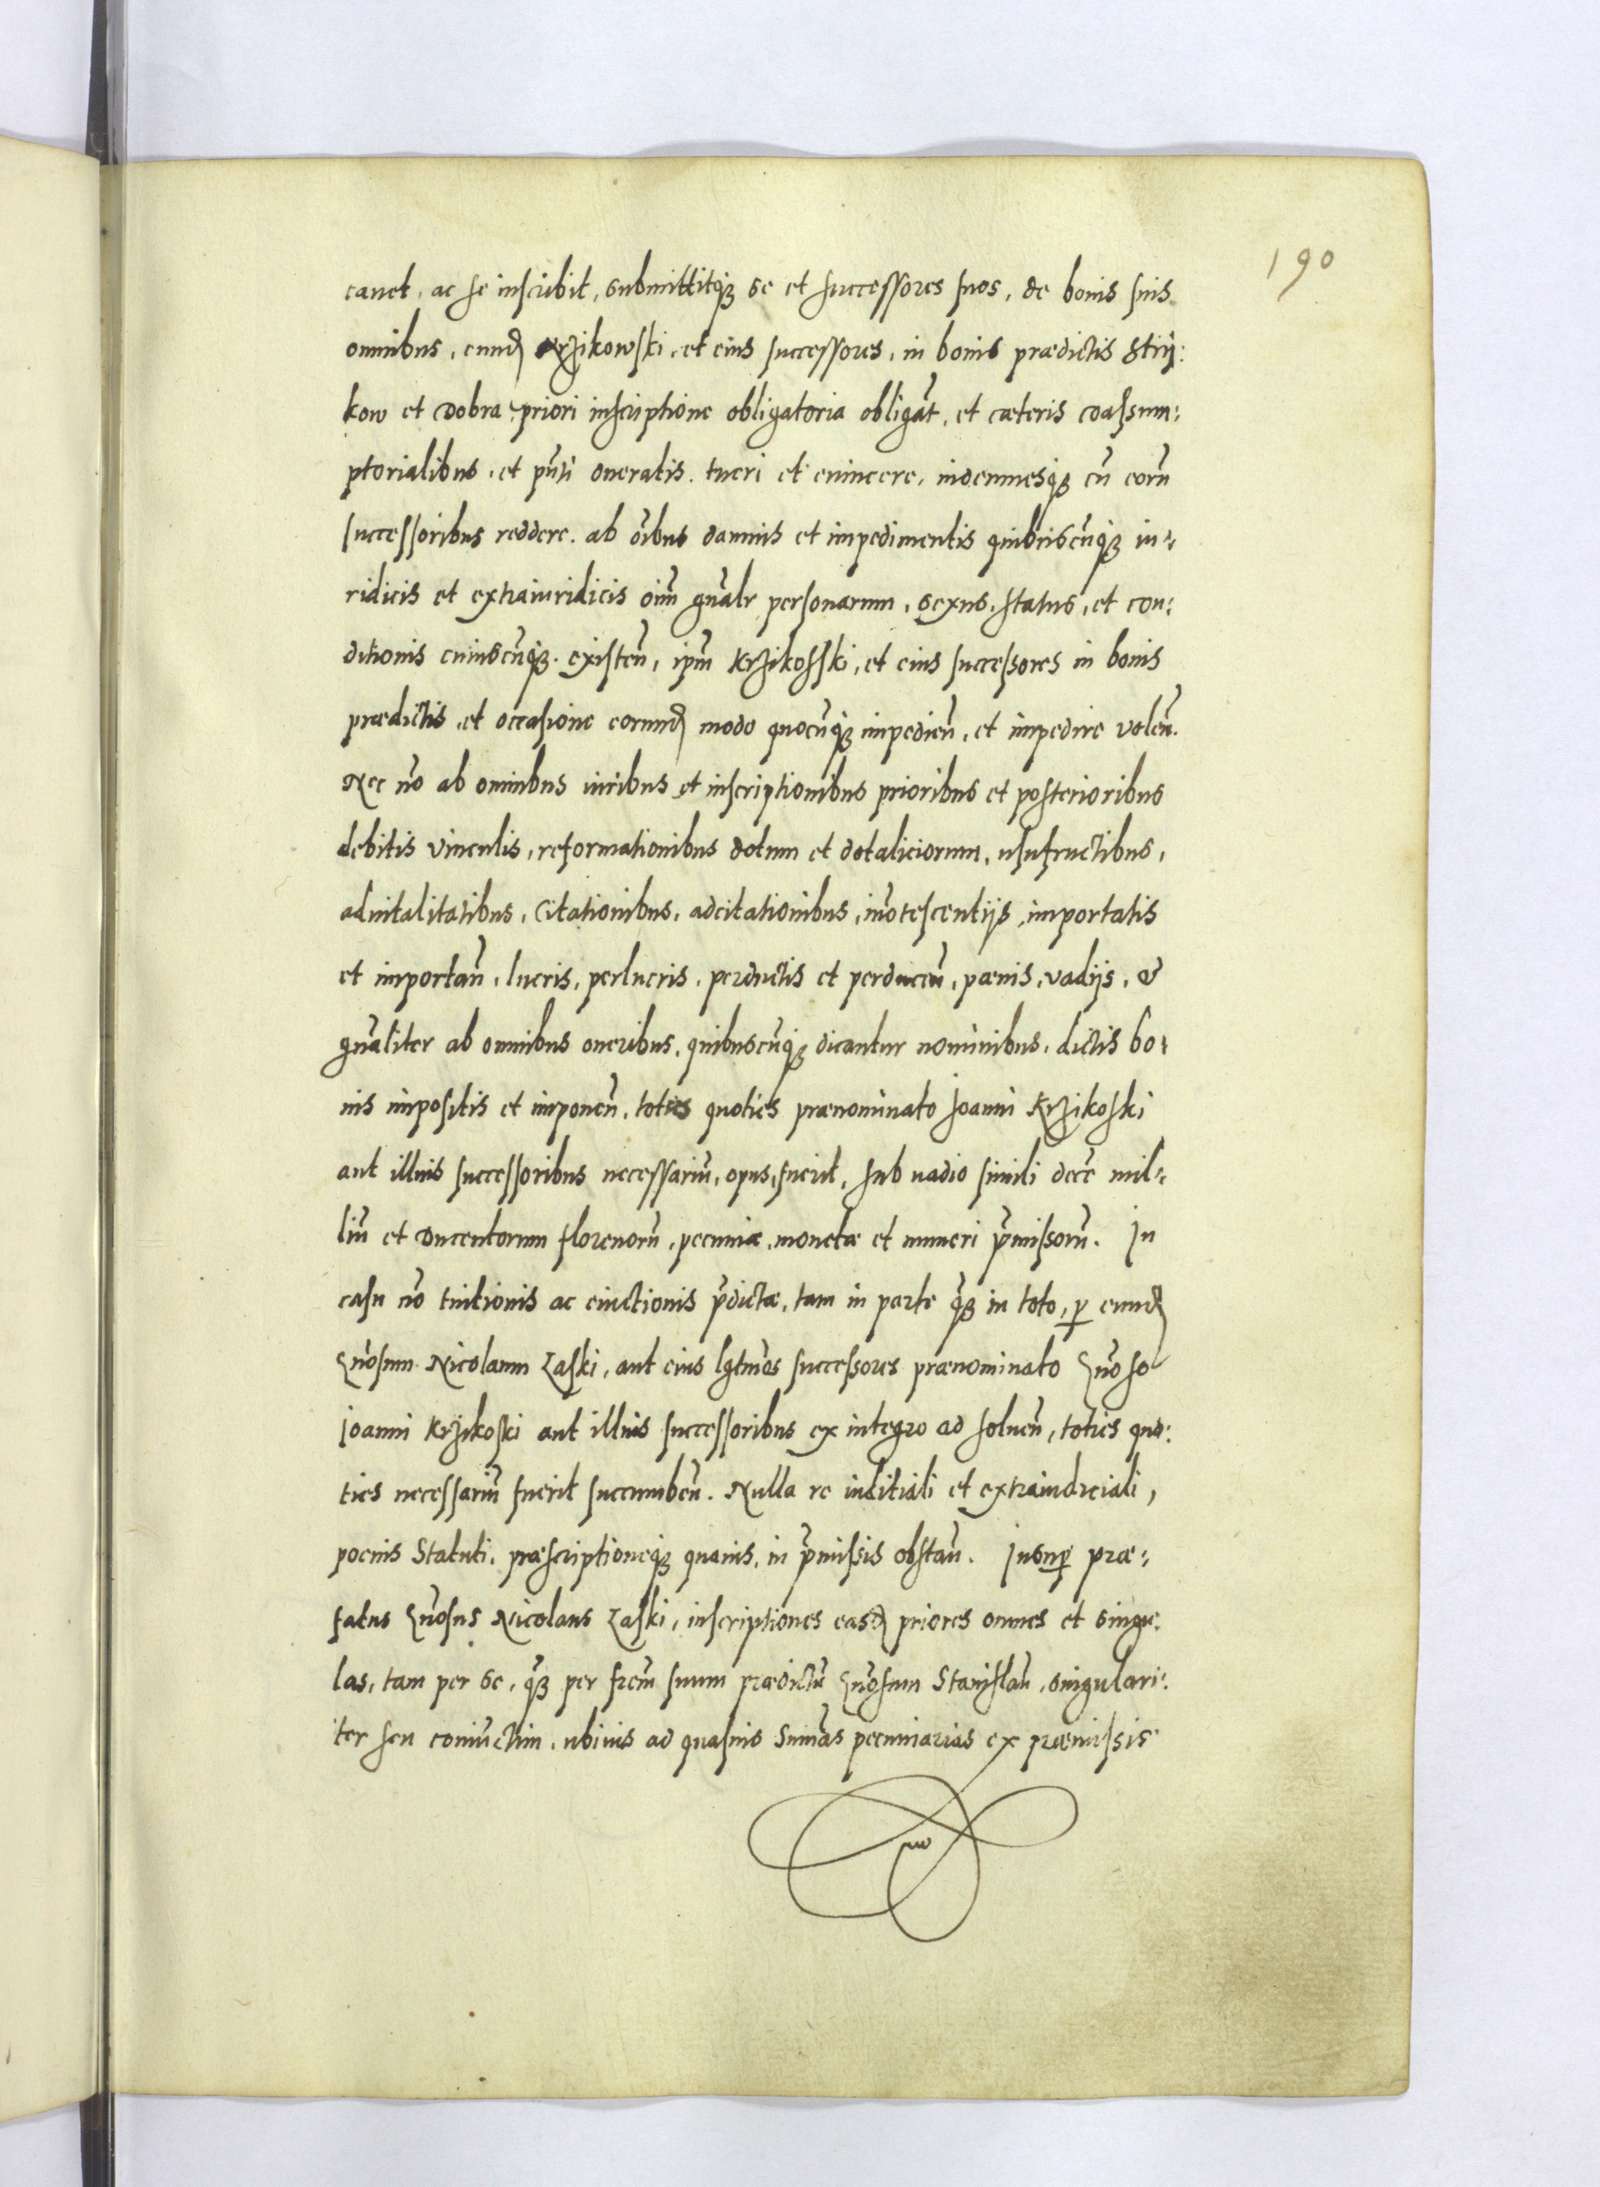 190
cauet, ac se inscribit, submittitqꝫ se et successores suos, de bonis suis
omnibus, eund Krzikowski, et eius successores, in bonis prædictis Strij:
kow et Dobra priori inscriptione obligatoria obligat̃, et cæteris coassum:
ptorialibus, et pñti oneratis. tueri et euincere, indemnesqꝫ cũ eorũ
successoribus reddere. ab oĩbus damnis et impedimentis quibuscũqꝫ iu:
ridicis et extraiuridicis oiũm gñalr personarum, sexus, status, et con:
ditionis cuiuscũqꝫ existeñ, ipm̃ Krzikosski, et eius successores in bonis
prædictis, et occasione eorund modo quocũqꝫ impedieñ, et impedire voleñ.
Nec nõ ab omnibus iuribus et inscriptionibus prioribus et posterioribus
debitis vinculis, reformationibus dotum et dotaliciorum, usufructibus,
aduitalitatibus, Citationibus, adcitationibus, iñotescentijs importatis
et importañ, lucris, perlucris, perductis et perduceñ, pænis, vadijs, &
gñaliter ab omnibus oneribus, quibuscũqꝫ dicantur nominibus, dictis bo:
nis impositis et imponeñ, toties quoties prænominato Joanni Krzikoski
aut illius successoribus necessariũ, opus, fuerit, sub uadio simili decẽ mil:
liũ et ducentorum florenorũ, pecuniæ, monetæ et numeri p̃missorũ. In
casu nõ tuitionis ac euictionis p̃dictæ, tam in parte q̃ꝫ in toto, ꝑ eund
Gñosum Nicolaum Laski, aut eius lgtm̃os successores prænominato Gñoso
Joanni Krzikoski aut illius successoribus ex integro ad solueñ, toties quo:
ties necessariũ fuerit succumbeñ. Nulla re iuditiali et extraiudiciali,
poenis Statuti, præscriptioneqꝫ quauis, in p̃missis obstañ. Insuꝑ præ:
fatus Gñosus Nicolaus Laski, inscriptiones easd priores omnes et singu:
las, tam per se, q̃ꝫ per frem̃ suum prædictũ Gñosum Stanislaũ, singulari:
ter seu coniũctim, ubiuis ad quasuis Sum̃as pecuniarias ex præmissis